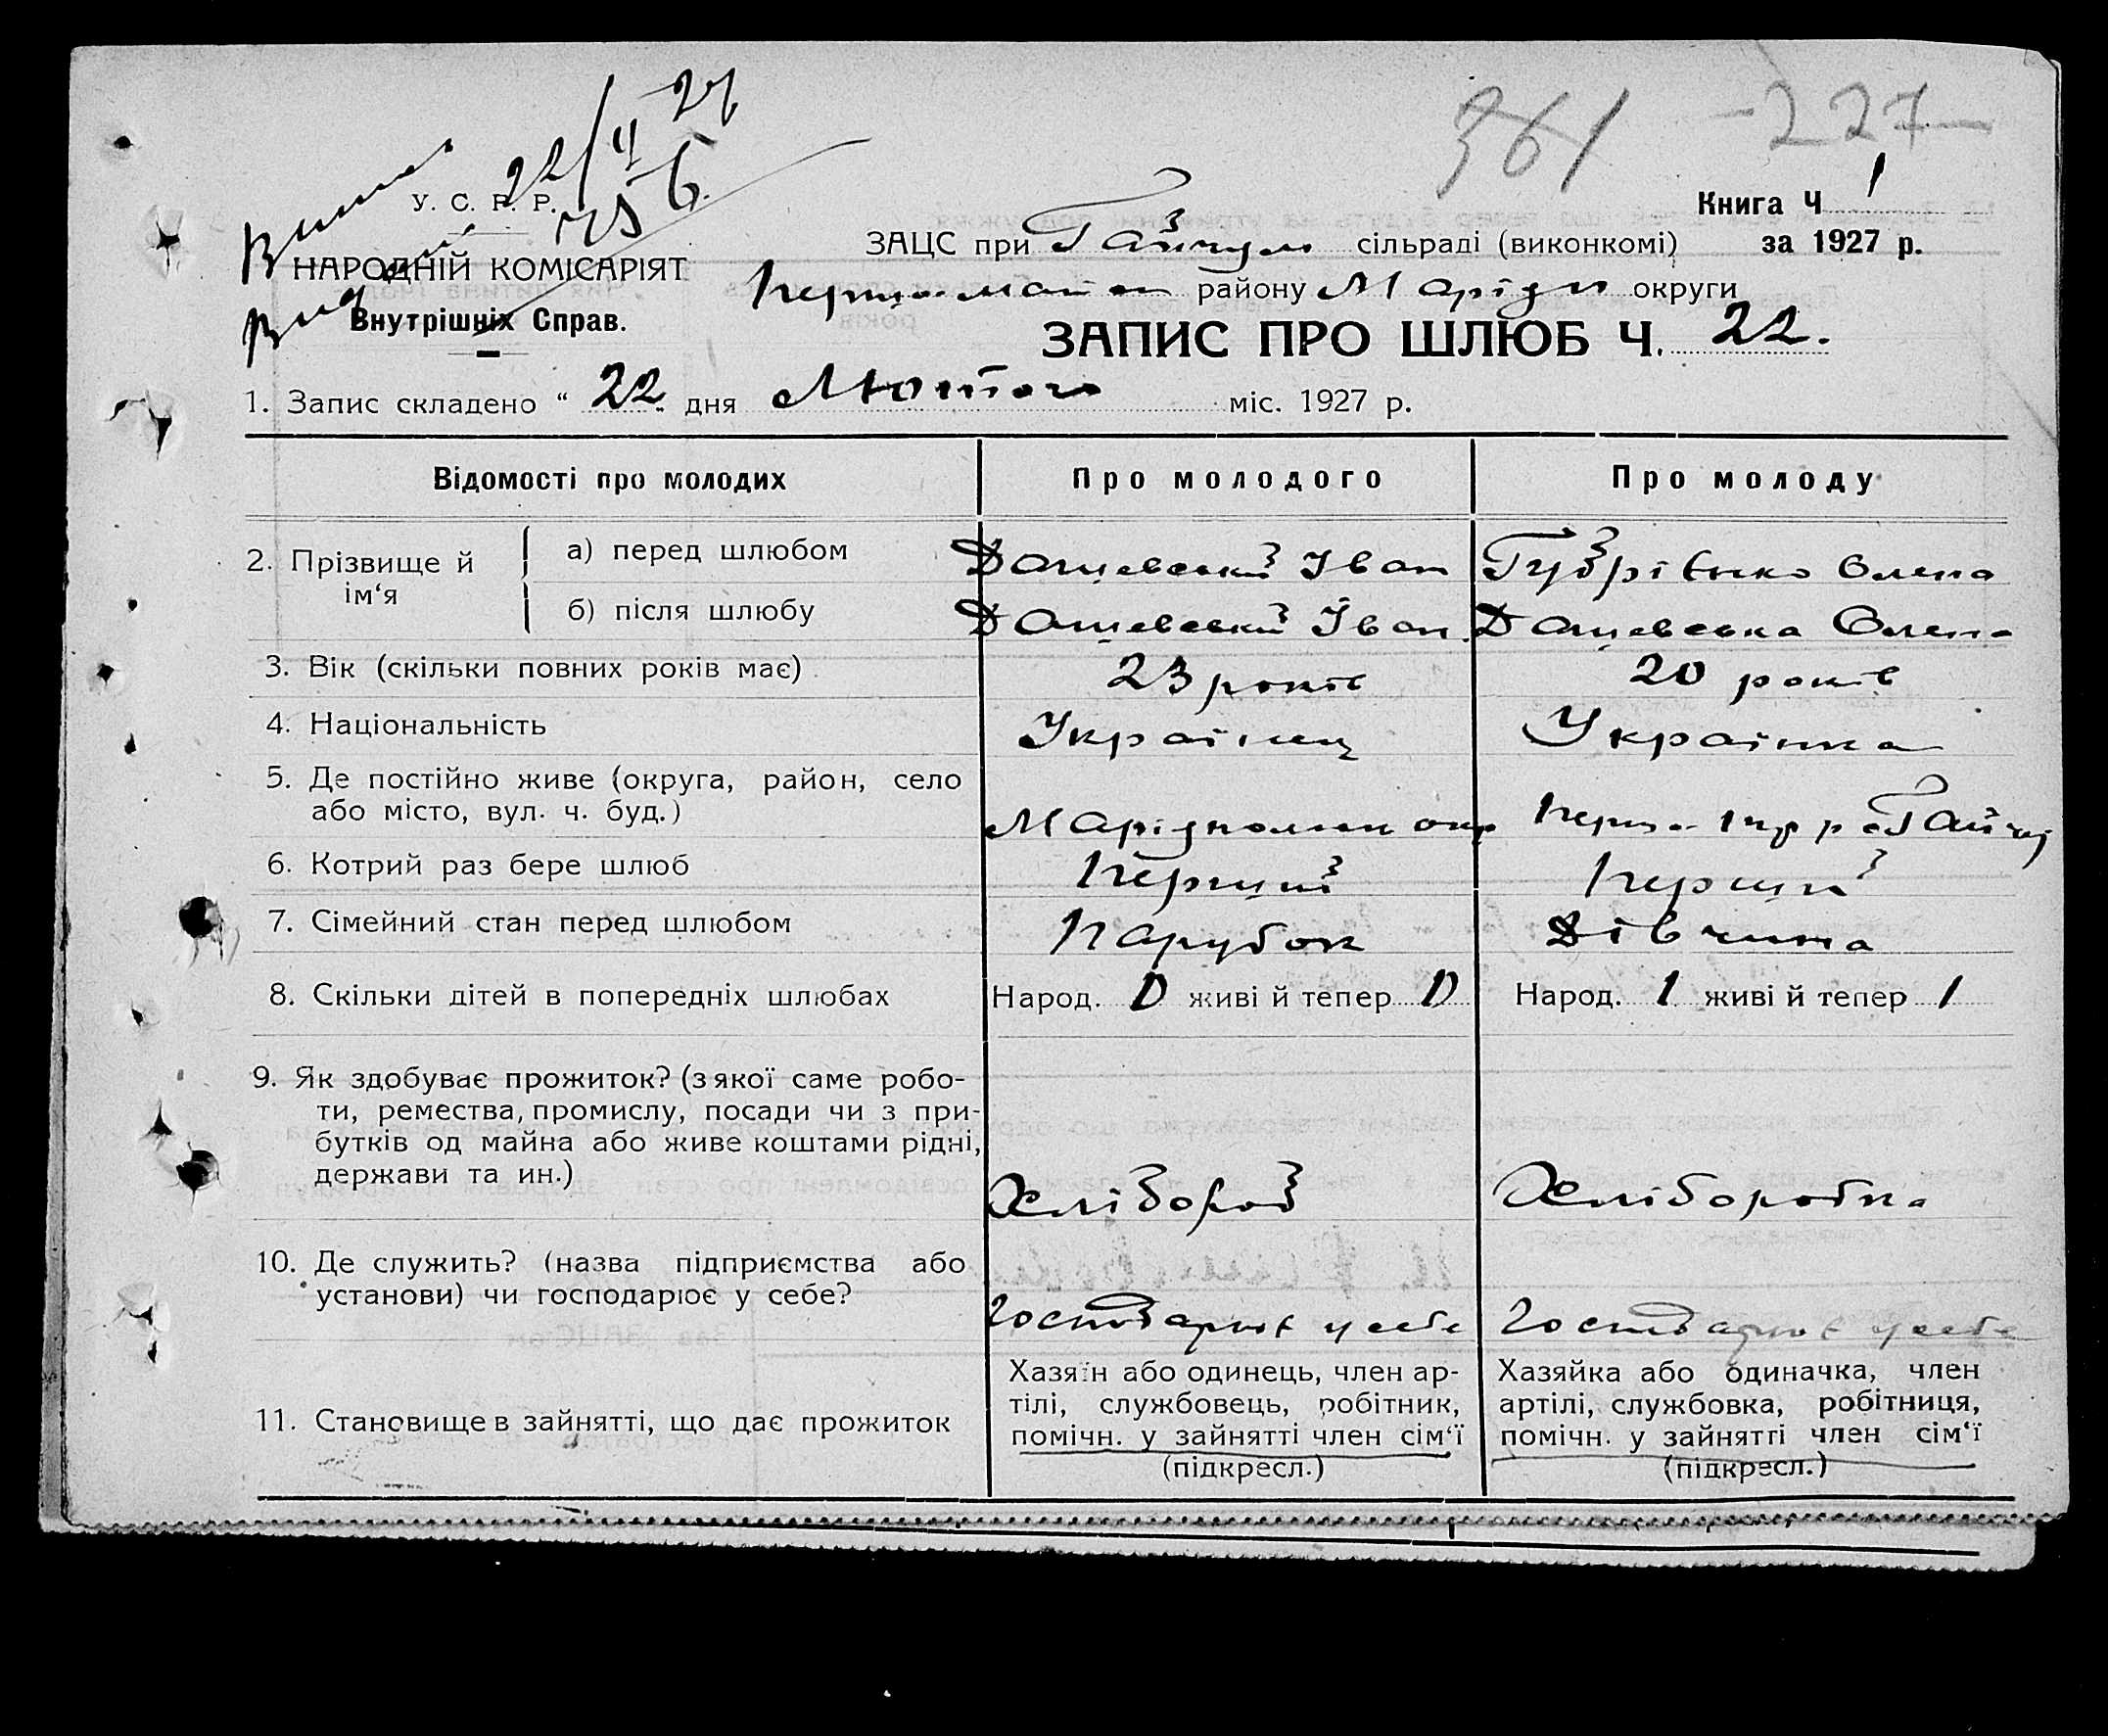 361 - 227
22/II 27
У. С. Р. Р.
Книга Ч 1
ЗАЦС при Гайчул сільраді (виконкомі) за 1927 р.
НАРОДНІЙ КОМІСАРІЯТ
району Маріуп округи
Внутрішніх Справ.
ЗАПИС ПРО ШЛЮБ Ч. 22.
1. Запис складено “ 22 дня Лютого міс. 1927 р.
Відомості про молодих Про молодого Про молоду
2. Прізвище й ім‘я а) перед шлюбом Дашевський Іван Олена
б) після шлюбу Дашевський Іван Дашевська Олена
3. Вік (скільки повних років має) 23 років 20 років
4. Національність Українец Українка
5. Де постійно живе (округа, район, село
або місто, вул. ч. буд.) окр
6. Котрий раз бере шлюб Перший Перший
7. Сімейний стан перед шлюбом Парубок Дівчина
8. Скільки дітей в попередніх шлюбах Народ. 0 живі й тепер 0 Народ. 1 живі й тепер 1
9. Як здобуває прожиток? (з якої саме робо-
ти, ремества, промислу, посади чи з при-
бутків од майна або живе коштами рідні,
держави та ин.) Хлібороб Хліборобка
10. Де служить? (назва підприємства або
установи) чи господарює у себе? Господарює у себе Господарює у себе
11. Становище в зайнятті, що дає прожиток
Хазяїн або одинець, член ар-
тілі, службовець, робітник,
помічн. у зайнятті член сім‘ї
(підкресл.)
Хазяйка або одиначка, член
артілі, службовка, робітниця,
помічн. у зайнятті член сім‘ї
(підкресл.)